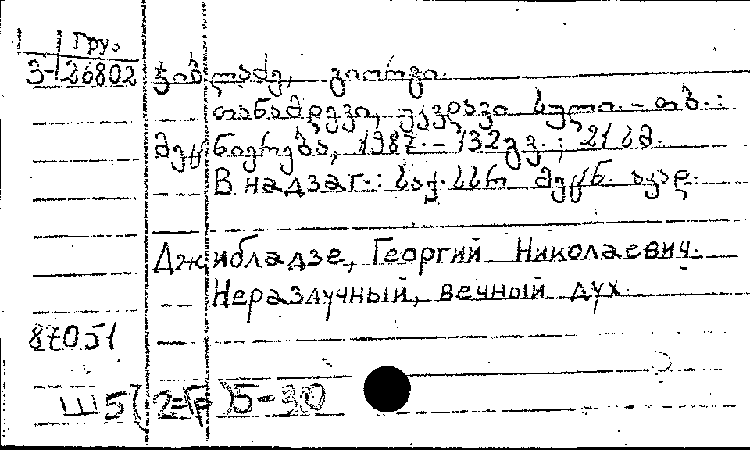 Гру.
3-26802 ჯიბლაძე, გიორგი.
თანამდევი, უკვდავი სული. - თბ.:
მეცნიერება, 1987. - 132 გვ.; 21 სმ.
В надзаг.: საქ. სსრ მეცნ. აკად.
Джибладзе, Георгий Николаевич.
Неразлучный, вечный дух.
87051
Ш5(2=Г)5-30